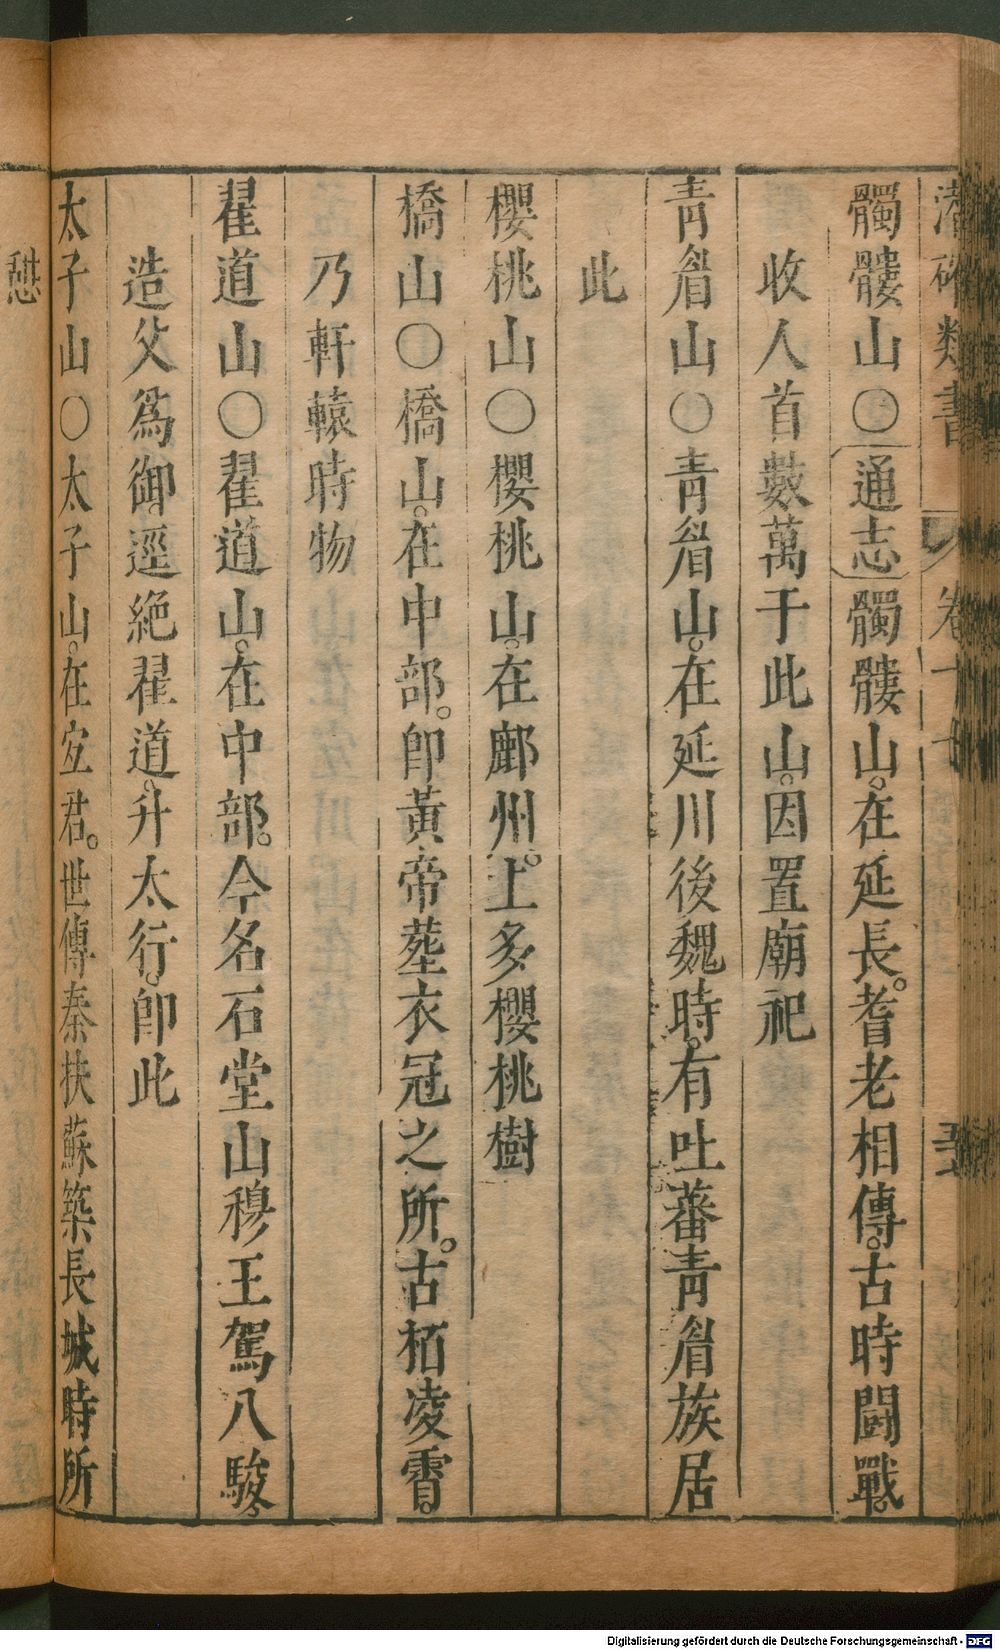 潛確類書 卷十七 五
髑髏山○通志髑髏山。在延長。耆老相傳。古時鬬戰。
收人首數萬于此山。因置廟祀
靑眉山○靑眉山。在延川後魏時。有吐蕃靑眉族居
此
櫻桃山○櫻桃山。在鄜州。上多櫻桃樹
橋山○橋山。在中部。卽黃帝塟衣冠之所。古栢凌霄。
乃軒轅時物
翟道山○翟道山。在中部。今名石堂山穆王駕八駿。
造父爲御。逕絶翟道。升太行。卽此
太子山○太子山。在宐君。世傳秦扶蘇築長城時所
憇
Digitalisierung gefördert durch die Deutsche Forschungsgemeinschaft - DFG